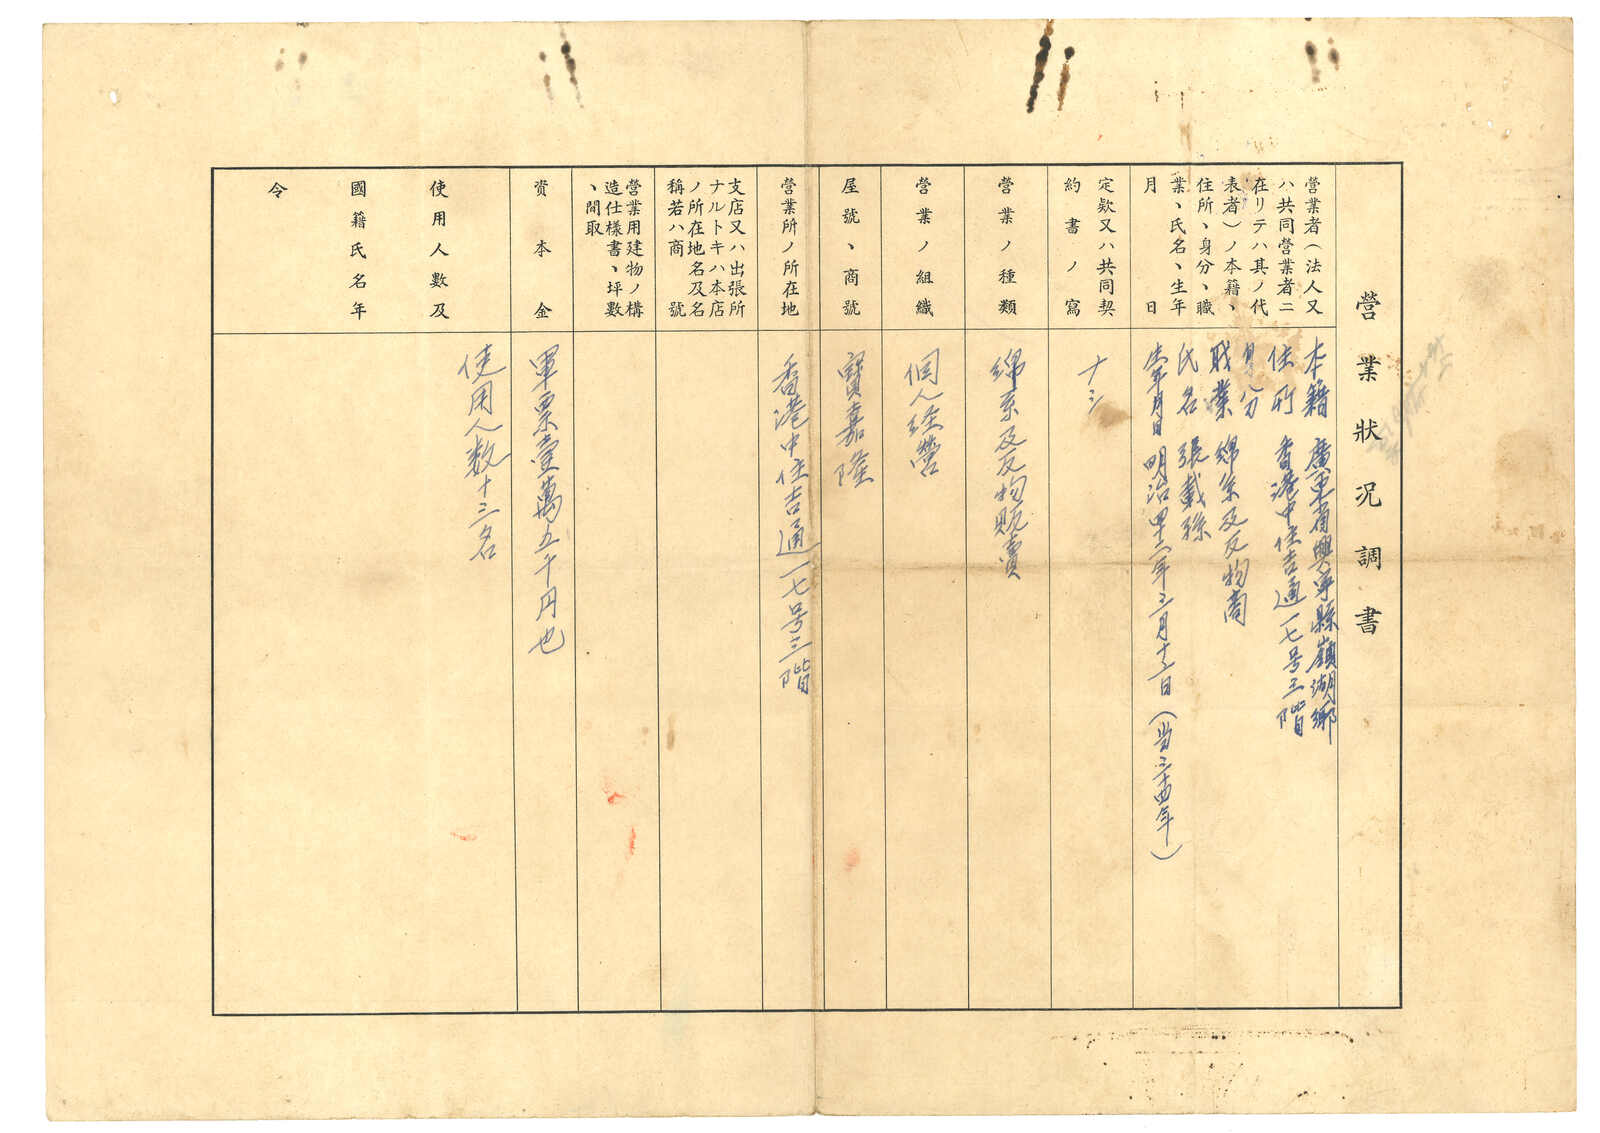 營業狀況調書
營業者(法人又
ハ共同營業者ニ
在リテハ其ノ代
表者)ノ本籍、
住所、身分、職
業、氏名、生年
月日
本籍 廣東省興寧縣嶺湖鄉
住所 香港中住吉通一七号三階
身分
職業 綿糸及反物商
氏名 張載
生年月日 明治四十二年三月十二日(当三十四年)
定款又ハ共同契
約書ノ寫
ナシ
營業ノ種類
綿糸及反物販賣
營業ノ組織
個人経營
屋號、商號
寶嘉隆
營業所ノ所在地
香港中住吉通一七号三階
支店又ハ出張所
ナルトキハ本店
ノ所在地名及名
稱若ハ商號
營業用建物ノ構
造仕樣書、坪數
、間取
資本金
軍票壹萬五千円也
使用人數及
國籍氏名年
令
使用人数十三名